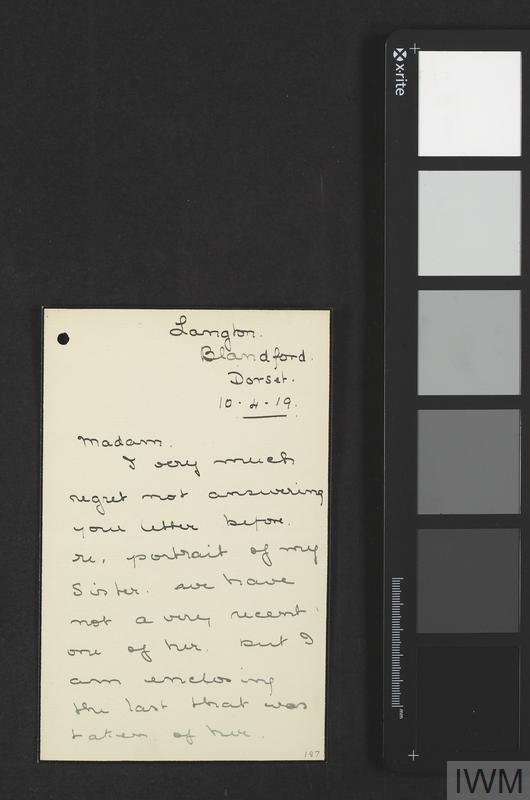 Langton.
Blandford.
Dorset.
10.4.19.
Madam.
I very much
regret not answering
your letter before.
re. portrait of my
Sister. we have
not a very recent
one of her. but I
am enclosing
the last that was
taken of her.
187
x-rite
mm
IWM